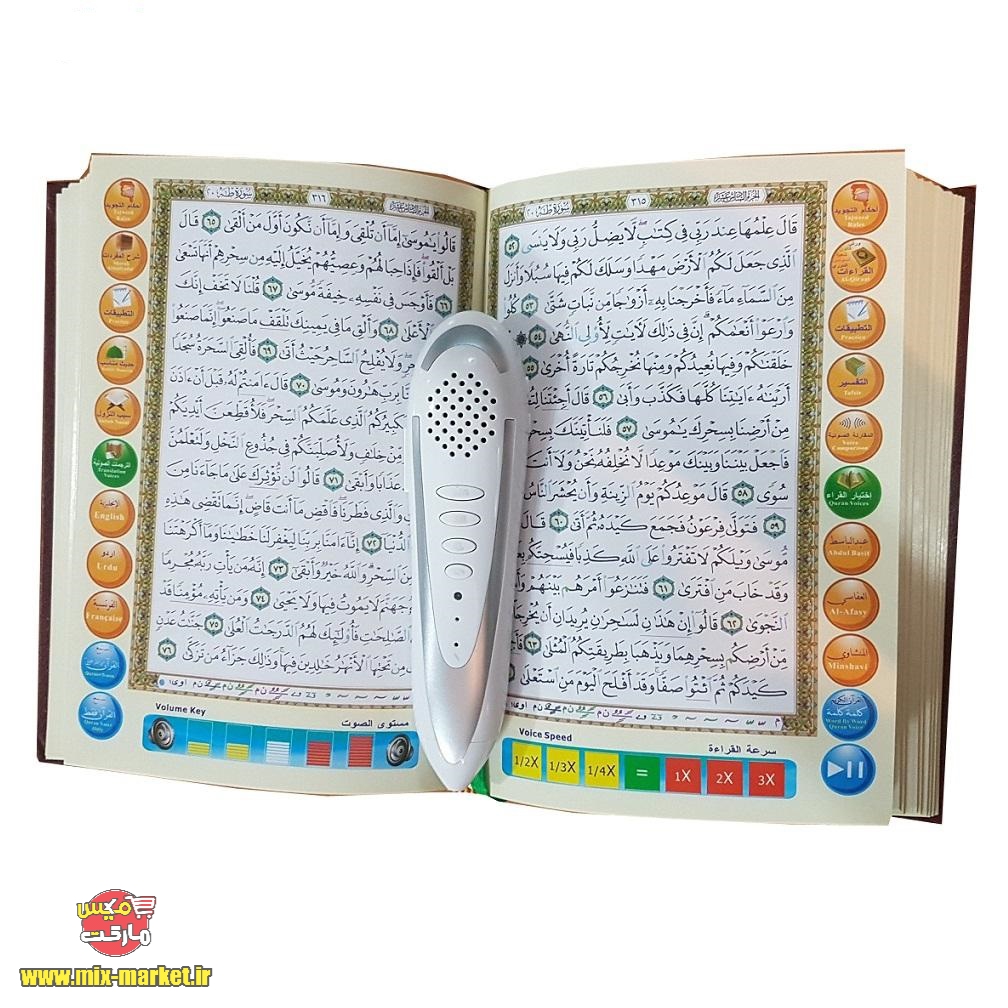 الجزء السادس عشر
٣١٥
سورة طه ٢٠
قَالَ عِلْمُهَا عِندَ رَبِّي فِي كِتَٰبٍ لَّا يَضِلُّ رَبِّي وَلَا يَنسَى ٥٢
ٱلَّذِي جَعَلَ لَكُمُ ٱلْأَرْضَ مَهْدًا وَسَلَكَ لَكُمْ فِيهَا سُبُلًا وَأَنزَلَ
مِنَ ٱلسَّمَآءِ مَآءً فَأَخْرَجْنَا بِهِۦٓ أَزْوَٰجًا مِّن نَّبَاتٍ شَتَّىٰ ٥٣ كُلُوا۟
وَٱرْعَوْا۟ أَنْعَٰمَكُمْ إِنَّ فِي ذَٰلِكَ لَأَيَٰتٍ لِّأُو۟لِي ٱلنُّهَىٰ ٥٤
خَلَقْنَٰكُمْ وَفِيهَا نُعِيدُكُمْ وَمِنْهَا نُخْرِجُكُمْ تَارَةً أُخْرَىٰ ٥٥
أَرَيْنَٰهُ ءَايَٰتِنَا كُلَّهَا فَكَذَّبَ وَأَبَىٰ ٥٦ قَالَ أَجِئْتَنَا
مِنْ أَرْضِنَا بِسِحْرِكَ يَٰمُوسَىٰ ٥٧ فَلَنَأْتِيَنَّكَ
فَٱجْعَلْ بَيْنَنَا وَبَيْنَكَ مَوْعِدًا لَّا نُخْلِفُهُۥ نَحْنُ وَلَآ أَنتَ
سُوًى ٥٨ قَالَ مَوْعِدُكُمْ يَوْمُ ٱلزِّينَةِ وَأَن يُحْشَرَ ٱلنَّاسُ
٥٩ فَتَوَلَّىٰ فِرْعَوْنُ فَجَمَعَ كَيْدَهُۥ ثُمَّ أَتَىٰ ٦٠ قَالَ
مُّوسَىٰ وَيْلَكُمْ لَا تَفْتَرُوا۟ عَلَى ٱللَّهِ كَذِبًا فَيُسْحِتَكُم
وَقَدْ خَابَ مَنِ ٱفْتَرَىٰ ٦١ فَتَنَٰزَعُوٓا۟ أَمْرَهُم بَيْنَهُمْ
ٱلنَّجْوَىٰ ٦٢ قَالُوٓا۟ إِنْ هَٰذَٰنِ لَسَٰحِرَٰنِ يُرِيدَانِ أَن
مِّنْ أَرْضِكُم بِسِحْرِهِمَا وَيَذْهَبَا بِطَرِيقَتِكُمُ ٱلْمُثْلَىٰ ٦٣
كَيْدَكُمْ ثُمَّ ٱئْتُوا۟ صَفًّا وَقَدْ أَفْلَحَ ٱلْيَوْمَ مَنِ ٱسْتَعْلَىٰ ٦٤
أحكام التجويد
Tajweed Rules
القراءات
Al-Qiraat
التطبيقات
Practice
التفسير
Tafsir
المقارنة الصوتية
Voice Comparison
إختيار القراء
Quran Voices
عبدالباسط
Abdul Basit
العفاسي
Al-Afasy
المنشاوي
Minshavi
كلمة كلمة
Word By Word
Quran Voice
Voice Speed
سرعة القراءة
1/2X 1/3X 1/4X = 1X 2X 3X
الجزء السادس عشر
٣١٦
سورة طه ٢٠
قَالُوا۟ يَٰمُوسَىٰٓ إِمَّآ أَن تُلْقِيَ وَإِمَّآ أَن نَّكُونَ أَوَّلَ مَنْ أَلْقَىٰ ٦٥ قَالَ
بَلْ أَلْقُوا۟ فَإِذَا حِبَالُهُمْ وَعِصِيُّهُمْ يُخَيَّلُ إِلَيْهِ مِن سِحْرِهِمْ أَنَّهَا تَسْعَىٰ
٦٦ فَأَوْجَسَ فِي نَفْسِهِۦ خِيفَةً مُّوسَىٰ ٦٧ قُلْنَا لَا تَخَفْ إِنَّكَ
ٱلْأَعْلَىٰ ٦٨ وَأَلْقِ مَا فِي يَمِينِكَ تَلْقَفْ مَا صَنَعُوٓا۟ إِنَّمَا صَنَعُوا۟
وَلَا يُفْلِحُ ٱلسَّاحِرُ حَيْثُ أَتَىٰ ٦٩ فَأُلْقِيَ ٱلسَّحَرَةُ سُجَّدًا
بِرَبِّ هَٰرُونَ وَمُوسَىٰ ٧٠ قَالَ ءَامَنتُمْ لَهُۥ قَبْلَ أَنْ ءَاذَنَ
ٱلَّذِي عَلَّمَكُمُ ٱلسِّحْرَ فَلَأُقَطِّعَنَّ أَيْدِيَكُمْ
مِّنْ خِلَٰفٍ وَلَأُصَلِّبَنَّكُمْ فِي جُذُوعِ ٱلنَّخْلِ وَلَتَعْلَمُنَّ
عَذَابًا وَأَبْقَىٰ ٧١ قَالُوا۟ لَن نُّؤْثِرَكَ عَلَىٰ مَا جَآءَنَا مِنَ
وَٱلَّذِي فَطَرَنَا فَٱقْضِ مَآ أَنتَ قَاضٍ إِنَّمَا تَقْضِي هَٰذِهِ
ٱلدُّنْيَآ ٧٢ إِنَّآ ءَامَنَّا بِرَبِّنَا لِيَغْفِرَ لَنَا خَطَٰيَٰنَا وَمَآ أَكْرَهْتَنَا
مِنَ ٱلسِّحْرِ وَٱللَّهُ خَيْرٌ وَأَبْقَىٰٓ ٧٣ إِنَّهُۥ مَن يَأْتِ رَبَّهُۥ مُجْرِمًا
جَهَنَّمَ لَا يَمُوتُ فِيهَا وَلَا يَحْيَىٰ ٧٤ وَمَن يَأْتِهِۦ مُؤْمِنًا قَدْ
ٱلصَّٰلِحَٰتِ فَأُو۟لَٰٓئِكَ لَهُمُ ٱلدَّرَجَٰتُ ٱلْعُلَىٰ ٧٥ جَنَّٰتُ عَدْنٍ
مِن تَحْتِهَا ٱلْأَنْهَٰرُ خَٰلِدِينَ فِيهَا وَذَٰلِكَ جَزَآءُ مَن تَزَكَّىٰ ٧٦
أحكام التجويد
Tajweed Rules
شرح المفردات
التطبيقات
Practice
حديث مناسب
سبب النزول
الترجمات الصوتية
Translation Voices
الإنجليزية
English
اردو
Urdu
الفرنسية
Française
القرآن فقط
Quran Voice Only
Volume Key
مستوى الصوت
میکس
مارکت
www.mix-market.ir